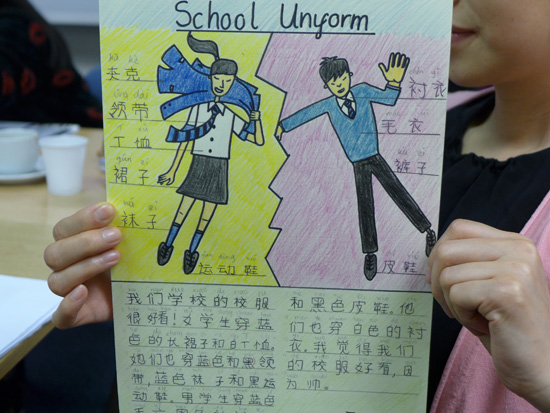 School Unyorm
夹克
领带
T恤
裙子
袜子
运动鞋
衬衣
毛衣
裤子
皮鞋
我们学校的校服
很好看！女学生穿蓝
色的长裙子和白T恤。
她们也穿蓝色和黑领
带，蓝色袜子和黑运
动鞋。男学生穿蓝色
和黑色皮鞋。他
们也穿白色的衬
衣。我觉得我们
的校服好看，因
为帅。